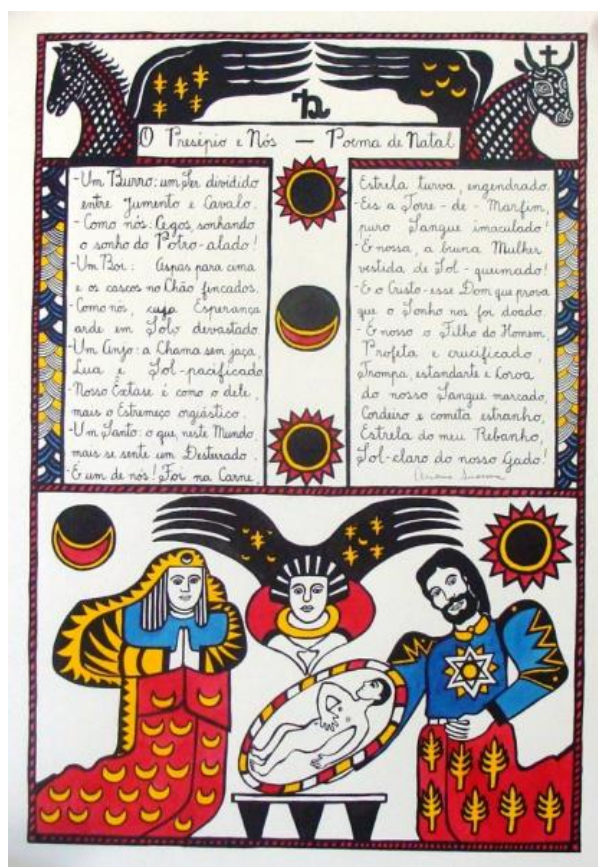 O Presépio e Nós — Poema de Natal
- Um Burro: um Ser dividido
entre Jumento e Cavalo.
- Como nós: Cegos, sonhando
o sonho do Potro-alado!
- Um Boi: Aspas para cima
e os cascos no Chão fincados.
- Como nós, cuja Esperança
arde em Solo devastado.
- Um Anjo: a Chama sem jaça,
Lua e Sol-pacificado
- Nosso Êxtase é como o dele,
mais o Estremeço orgiástico.
- Um Santo: o que, neste Mundo,
mais se sente um Desterrado.
- É um de nós! Foi na Carne,
Estrela turva, engendrado.
- Eis a Torre-de-Marfim,
puro Sangue imaculado!
- É nossa, a bruna Mulher
vestida de Sol-queimado!
- E o Cristo-esse Dom que prova
que o Sonho nos foi doado.
- É nosso o Filho do Homem,
Profeta e crucificado,
Trompa, estandarte e Coroa
do nosso Sangue marcado,
Cordeiro e cometa estranho,
Estrela do meu Rebanho,
Sol-claro do nosso Gado!
Ariano Suassuna